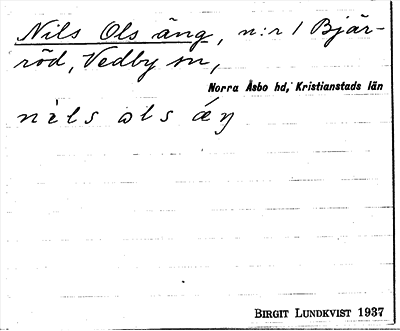 Nils Ols äng, n:r 1 Bjär-
röd, Vedby sn,
Norra Åsbo hd, Kristianstads län
nìls ɷls ǽŋ
BIRGIT LUNDKVIST 1937